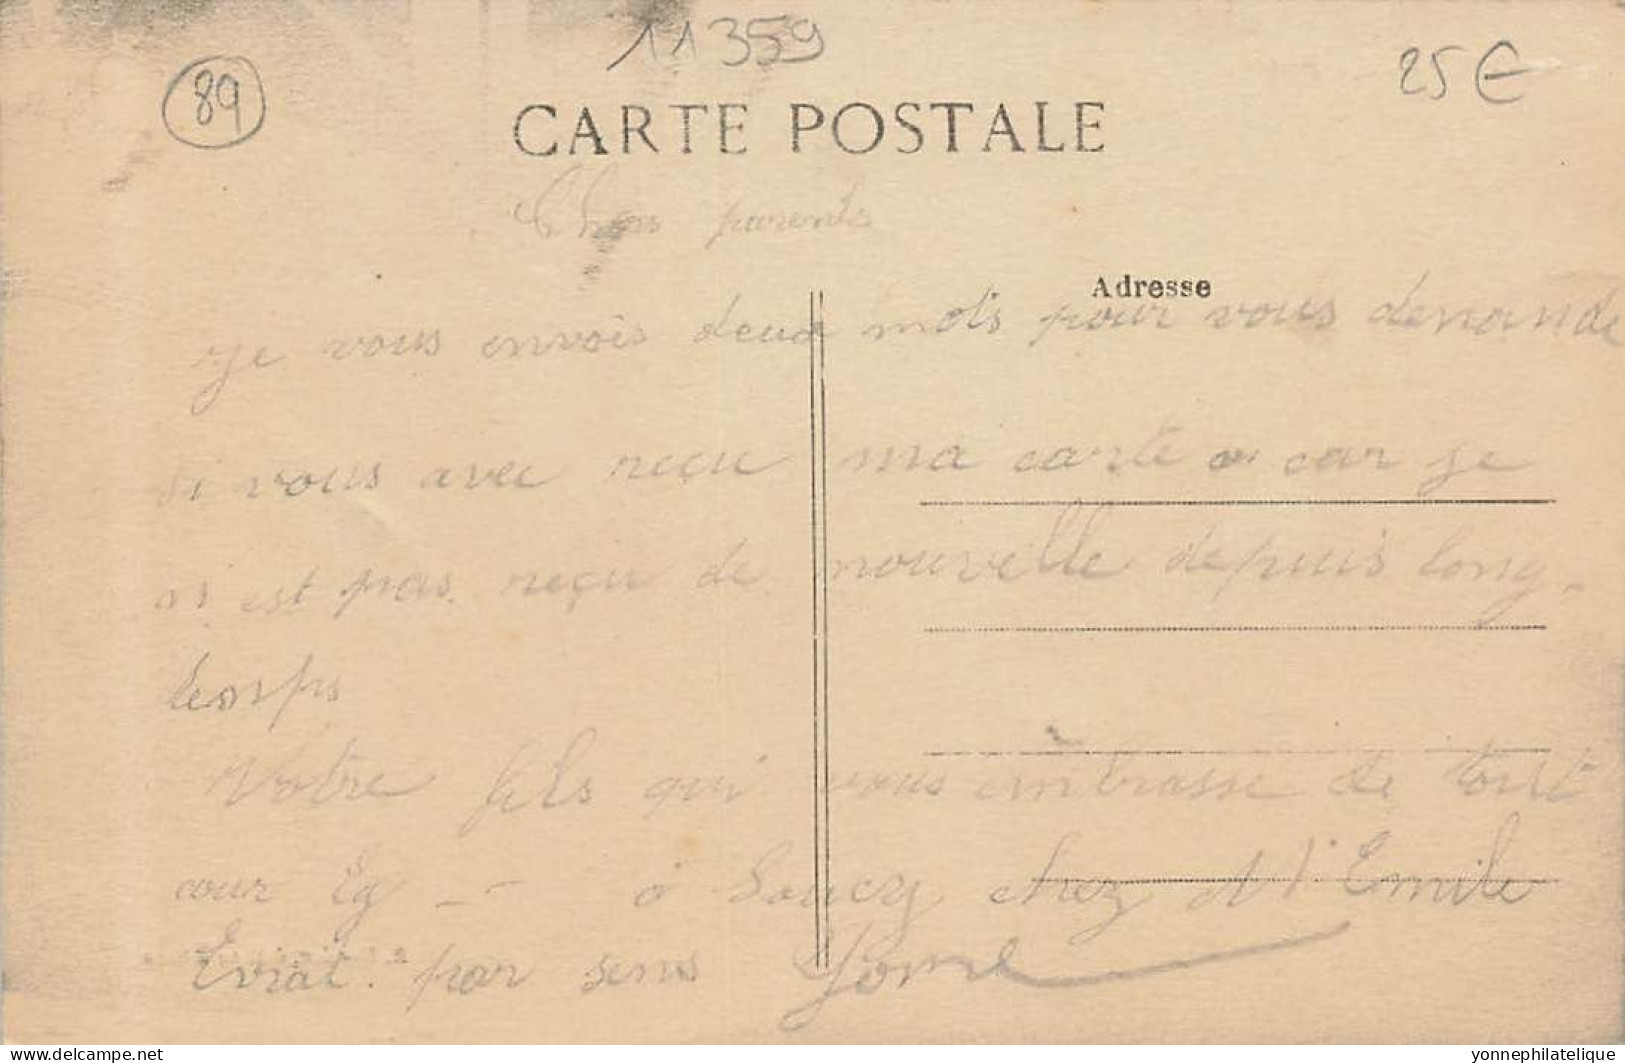 11359
89
25€
CARTE POSTALE
Chers parents
Adresse
Je vous envois deux mots pour vous demande
si vous avec reçu ma carte car je
n est pas reçu de nouvelle depuis long-
temps
Votre fils qui vous embrasse de tout
cour Eg - à Soucy chez M Emile
Evrat. par sens Yonne
www.delcampe.net
yonnephilatelique